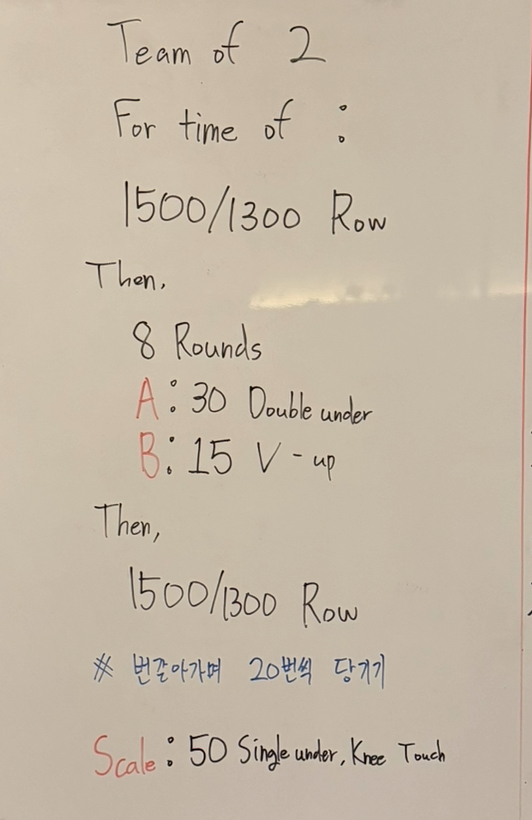 Team of 2
For time of :
1500/1300 Row
Then,
8 Rounds
A: 30 Double under
B: 15 V-up
Then,
1500/1300 Row
※ 번갈아가며 20번씩 당기기
Scale: 50 Single under, Knee Touch